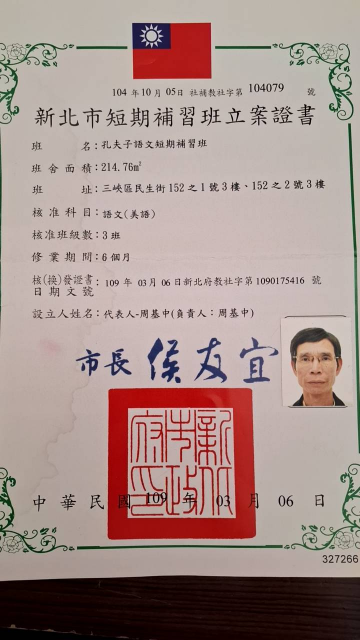 104 年 10 月 05 日 社補教社字第 104079 號
新北市短期補習班立案證書
班 名：孔夫子語文短期補習班
班 舍 面 積：214.76㎡
班 址：三峽區民生街152之1號3樓、152之2號3樓
核 准 科 目：語文(美語)
核准班級數：3 班
修 業 期 間：6 個月
核(換)發證書日期文號：109 年 03 月 06 日新北府教社字第1090175416 號
設立人姓名：代表人-周基中(負責人：周基中)
市長 侯友宜
新北市政府印
中 華 民 國 109 年 03 月 06 日
327266